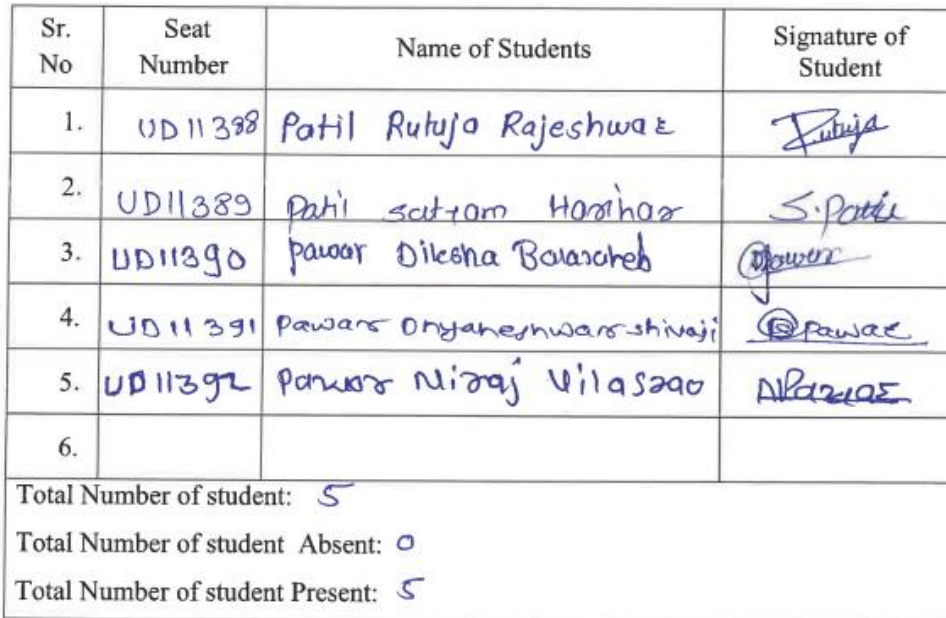 Sr. No Seat Number Name of Students Signature of Student
1. UD11388 Patil Rutuja Rajeshwar Rutuja
2. UD11389 Patil satyam Harihar S.Patil
3. UD11390 pawar Diksha Balasaheb Pawar
4. UD11391 pawar Dnyaneshwar shivaji Pawar
5. UD11392 Pawar Niraj Vilasrao NPawar
6.
Total Number of student: 5
Total Number of student Absent: 0
Total Number of student Present: 5